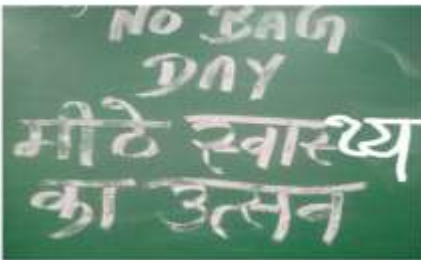 NO BAG
DAY
मीठे स्वास्थ्य
का उत्सन